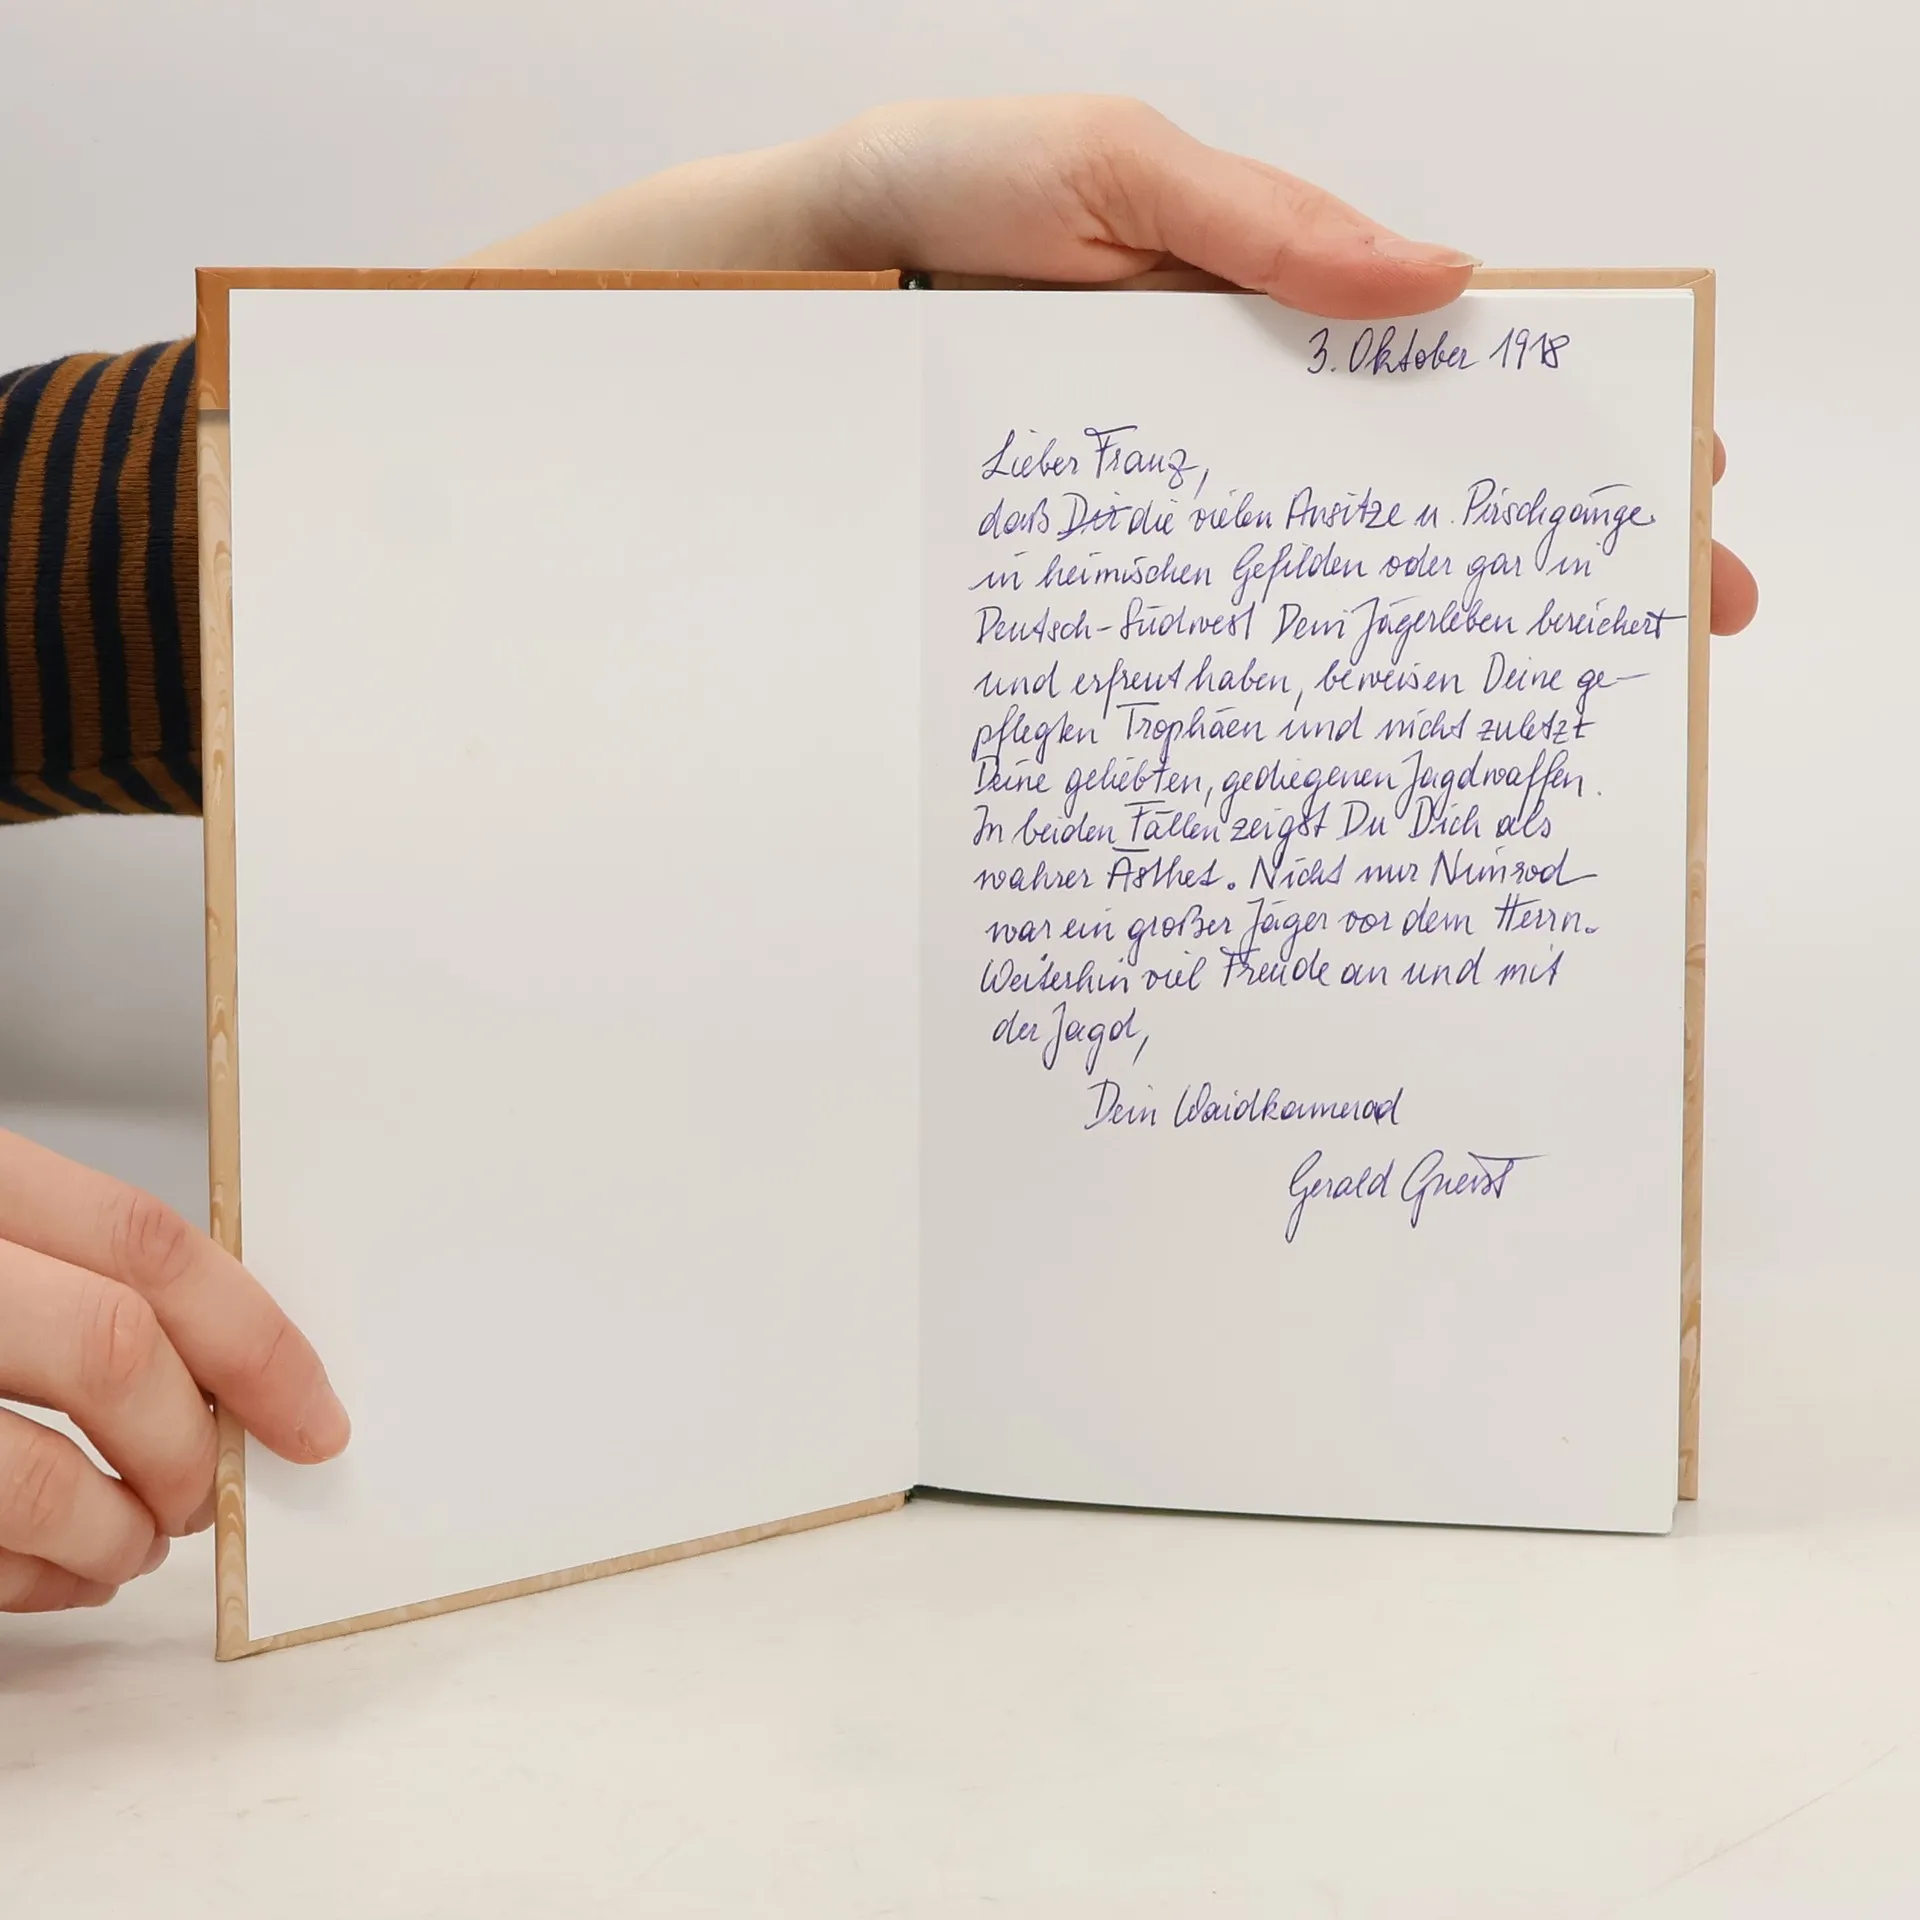 3. Oktober 1918
Lieber Franz,
daß Dir die vielen Ansitze u. Pirschgänge
in heimischen Gefilden oder gar in
Deutsch-Südwest Dein Jägerleben bereichert
und erfreut haben, beweisen Deine ge-
pflegten Trophäen und nicht zuletzt
Deine geliebten, gediegenen Jagdwaffen.
In beiden Fällen zeigst Du Dich als
wahrer Ästhet. Nicht nur Nimrod
war ein großer Jäger vor dem Herrn.
Weiterhin viel Freude an und mit
der Jagd,
Dein Waidkamerad
Gerald Gneist